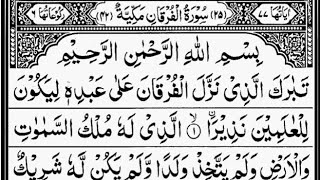 اٰيَاتُهَا ٧٧ (٢٥) سُوْرَةُ الْفُرْقَانِ مَكِّيَّةٌ (٤٢) رُكُوْعَاتُهَا ٦
بِسْمِ اللّٰهِ الرَّحْمٰنِ الرَّحِيْمِ
تَبٰرَكَ الَّذِىْ نَزَّلَ الْفُرْقَانَ عَلٰى عَبْدِهٖ لِيَكُوْنَ
لِلْعٰلَمِيْنَ نَذِيْرًا ۙ ١ الَّذِىْ لَهٗ مُلْكُ السَّمٰوٰتِ
وَالْاَرْضِ وَلَمْ يَتَّخِذْ وَلَدًا وَّلَمْ يَكُنْ لَّهٗ شَرِيْكٌ